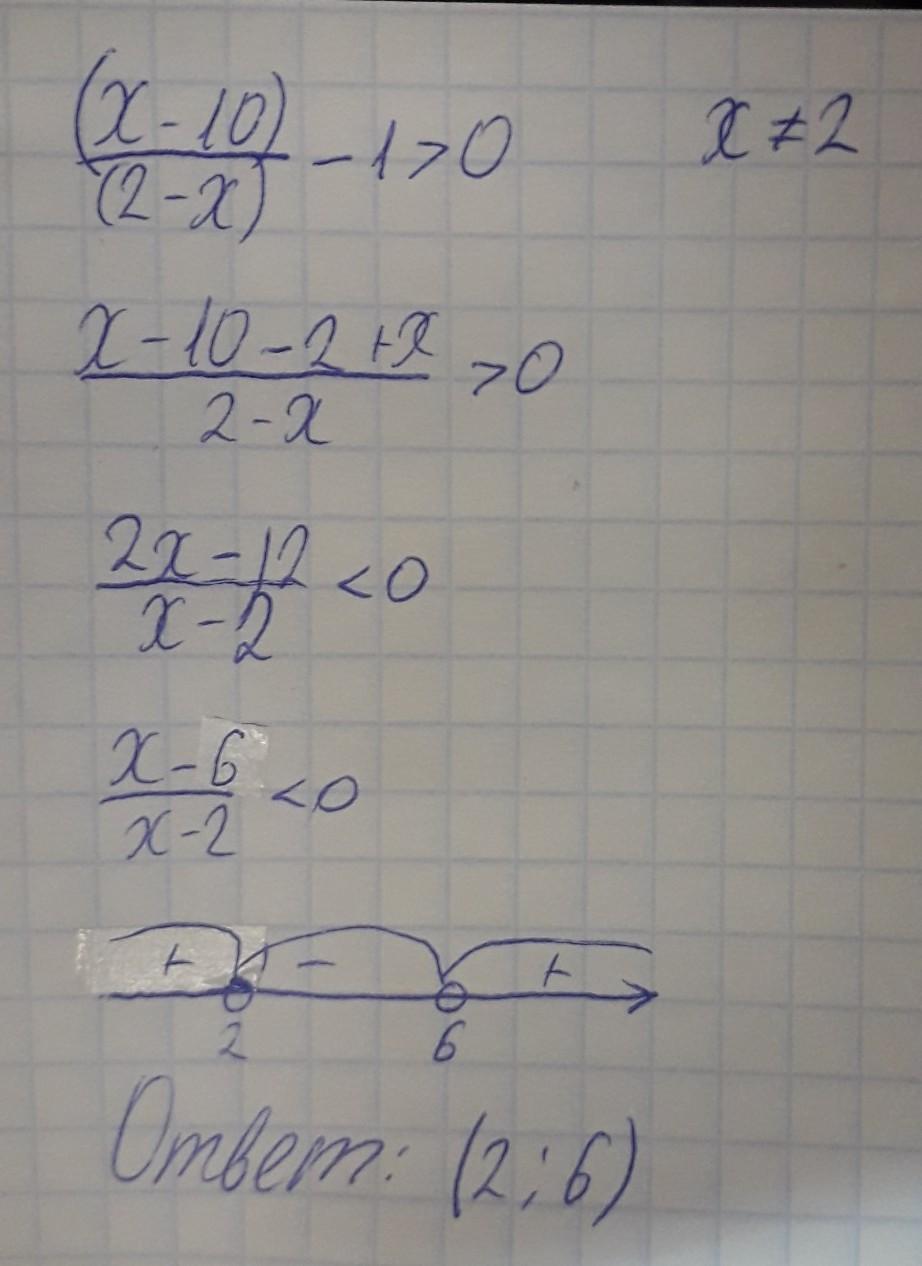 (x-10)/(2-x) - 1 > 0    x ≠ 2
(x-10-2+x)/(2-x) > 0
(2x-12)/(x-2) < 0
(x-6)/(x-2) < 0
+ - +
2 6
Ответ: (2; 6)